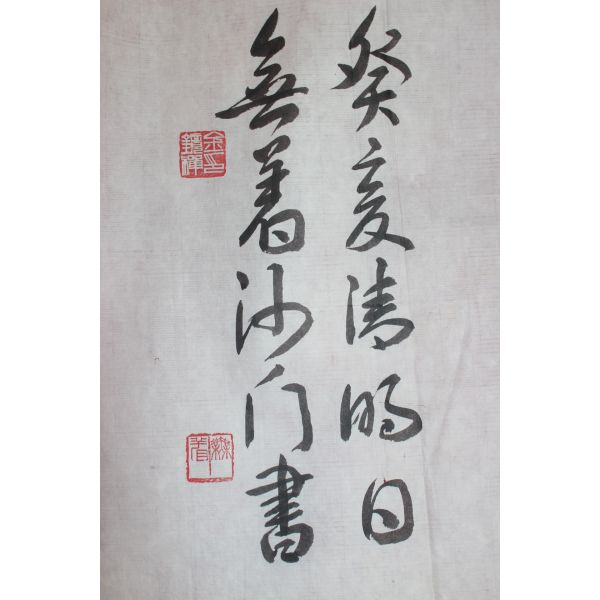 癸亥清明日
無着沙门書